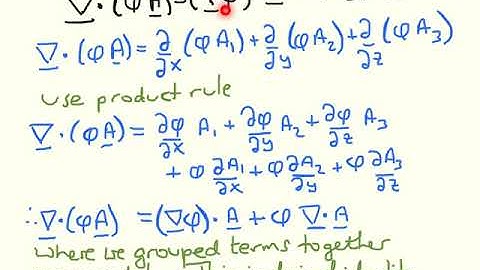 ∇·(φA)=(∇φ)
∇·(φA) = ∂/∂x (φA₁) + ∂/∂y (φA₂) + ∂/∂z (φA₃)
use product rule
∇·(φA) = ∂φ/∂x A₁ + ∂φ/∂y A₂ + ∂φ/∂z A₃
+ φ ∂A₁/∂x + φ ∂A₂/∂y + φ ∂A₃/∂z
∴ ∇·(φA) = (∇φ)·A + φ ∇·A
where we grouped terms together